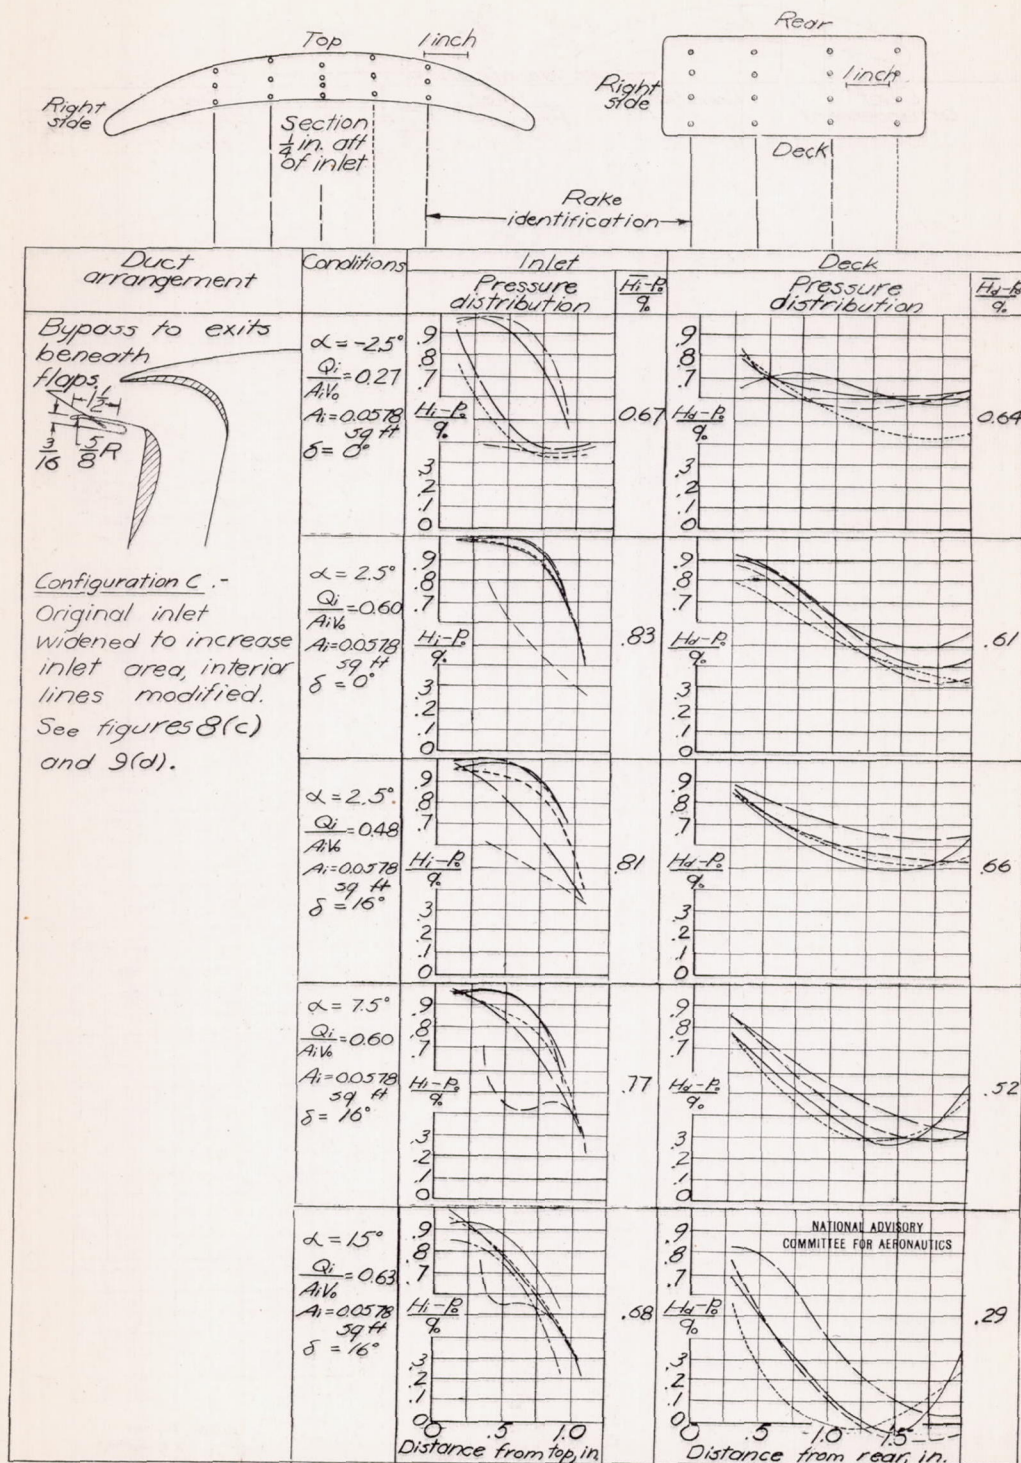 Top
1 inch
Right side
Section
1/4 in. aft
of inlet
Rear
Right side
1 inch
Deck
Rake
identification
Duct
arrangement
Conditions
Inlet
Pressure
distribution
H̅i-Po
qo
Deck
Pressure
distribution
H̅d-Po
qo
Bypass to exits
beneath
flaps
1 1/2
3/16
5/8 R
Configuration C.-
Original inlet
widened to increase
inlet area, interior
lines modified.
See figures 8(c)
and 9(d).
α = -2.5°
Qi/AiVo = 0.27
Ai=0.0578
sq ft
δ = 0°
.9
.8
.7
Hi-Po
qo
.3
.2
.1
0
0.67
.9
.8
.7
Hd-Po
qo
.3
.2
.1
0
0.64
α = 2.5°
Qi/AiVo = 0.60
Ai=0.0578
sq ft
δ = 0°
.9
.8
.7
Hi-Po
qo
.3
.2
.1
0
.83
.9
.8
.7
Hd-Po
qo
.3
.2
.1
0
.61
α = 2.5°
Qi/AiVo = 0.48
Ai=0.0578
sq ft
δ = 16°
.9
.8
.7
Hi-Po
qo
.3
.2
.1
0
.81
.9
.8
.7
Hd-Po
qo
.3
.2
.1
0
.66
α = 7.5°
Qi/AiVo = 0.60
Ai=0.0578
sq ft
δ = 16°
.9
.8
.7
Hi-Po
qo
.3
.2
.1
0
.77
.9
.8
.7
Hd-Po
qo
.3
.2
.1
0
.52
α = 15°
Qi/AiVo = 0.63
Ai=0.0578
sq ft
δ = 16°
.9
.8
.7
Hi-Po
qo
.3
.2
.1
0
0 .5 1.0
Distance from top, in.
.68
NATIONAL ADVISORY
COMMITTEE FOR AERONAUTICS
.9
.8
.7
Hd-Po
qo
.3
.2
.1
0
0 .5 1.0 1.5
Distance from rear, in.
.29